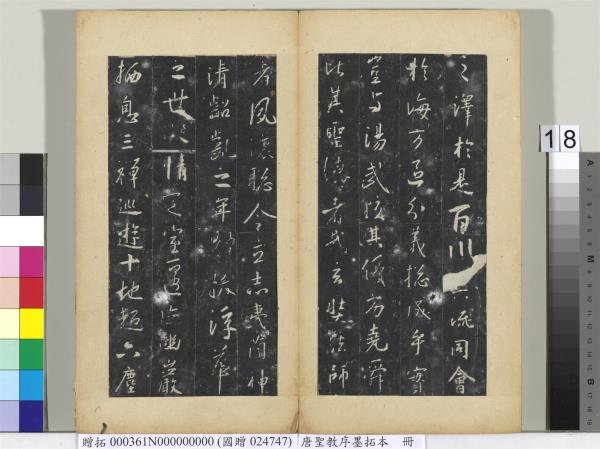 之澤於是百川流同會
於海方區分義捴成乎實
豈与湯武挍其優劣堯舜
比其聖德者哉玄奘法師
者夙懷聡令立志夷簡神
清齠齔之年體拔浮華
之世情定室匿跡幽巖
栖息三禪巡遊十地超六塵
18
贈拓 000361N000000000 (國贈 024747) 唐聖教序墨拓本 冊